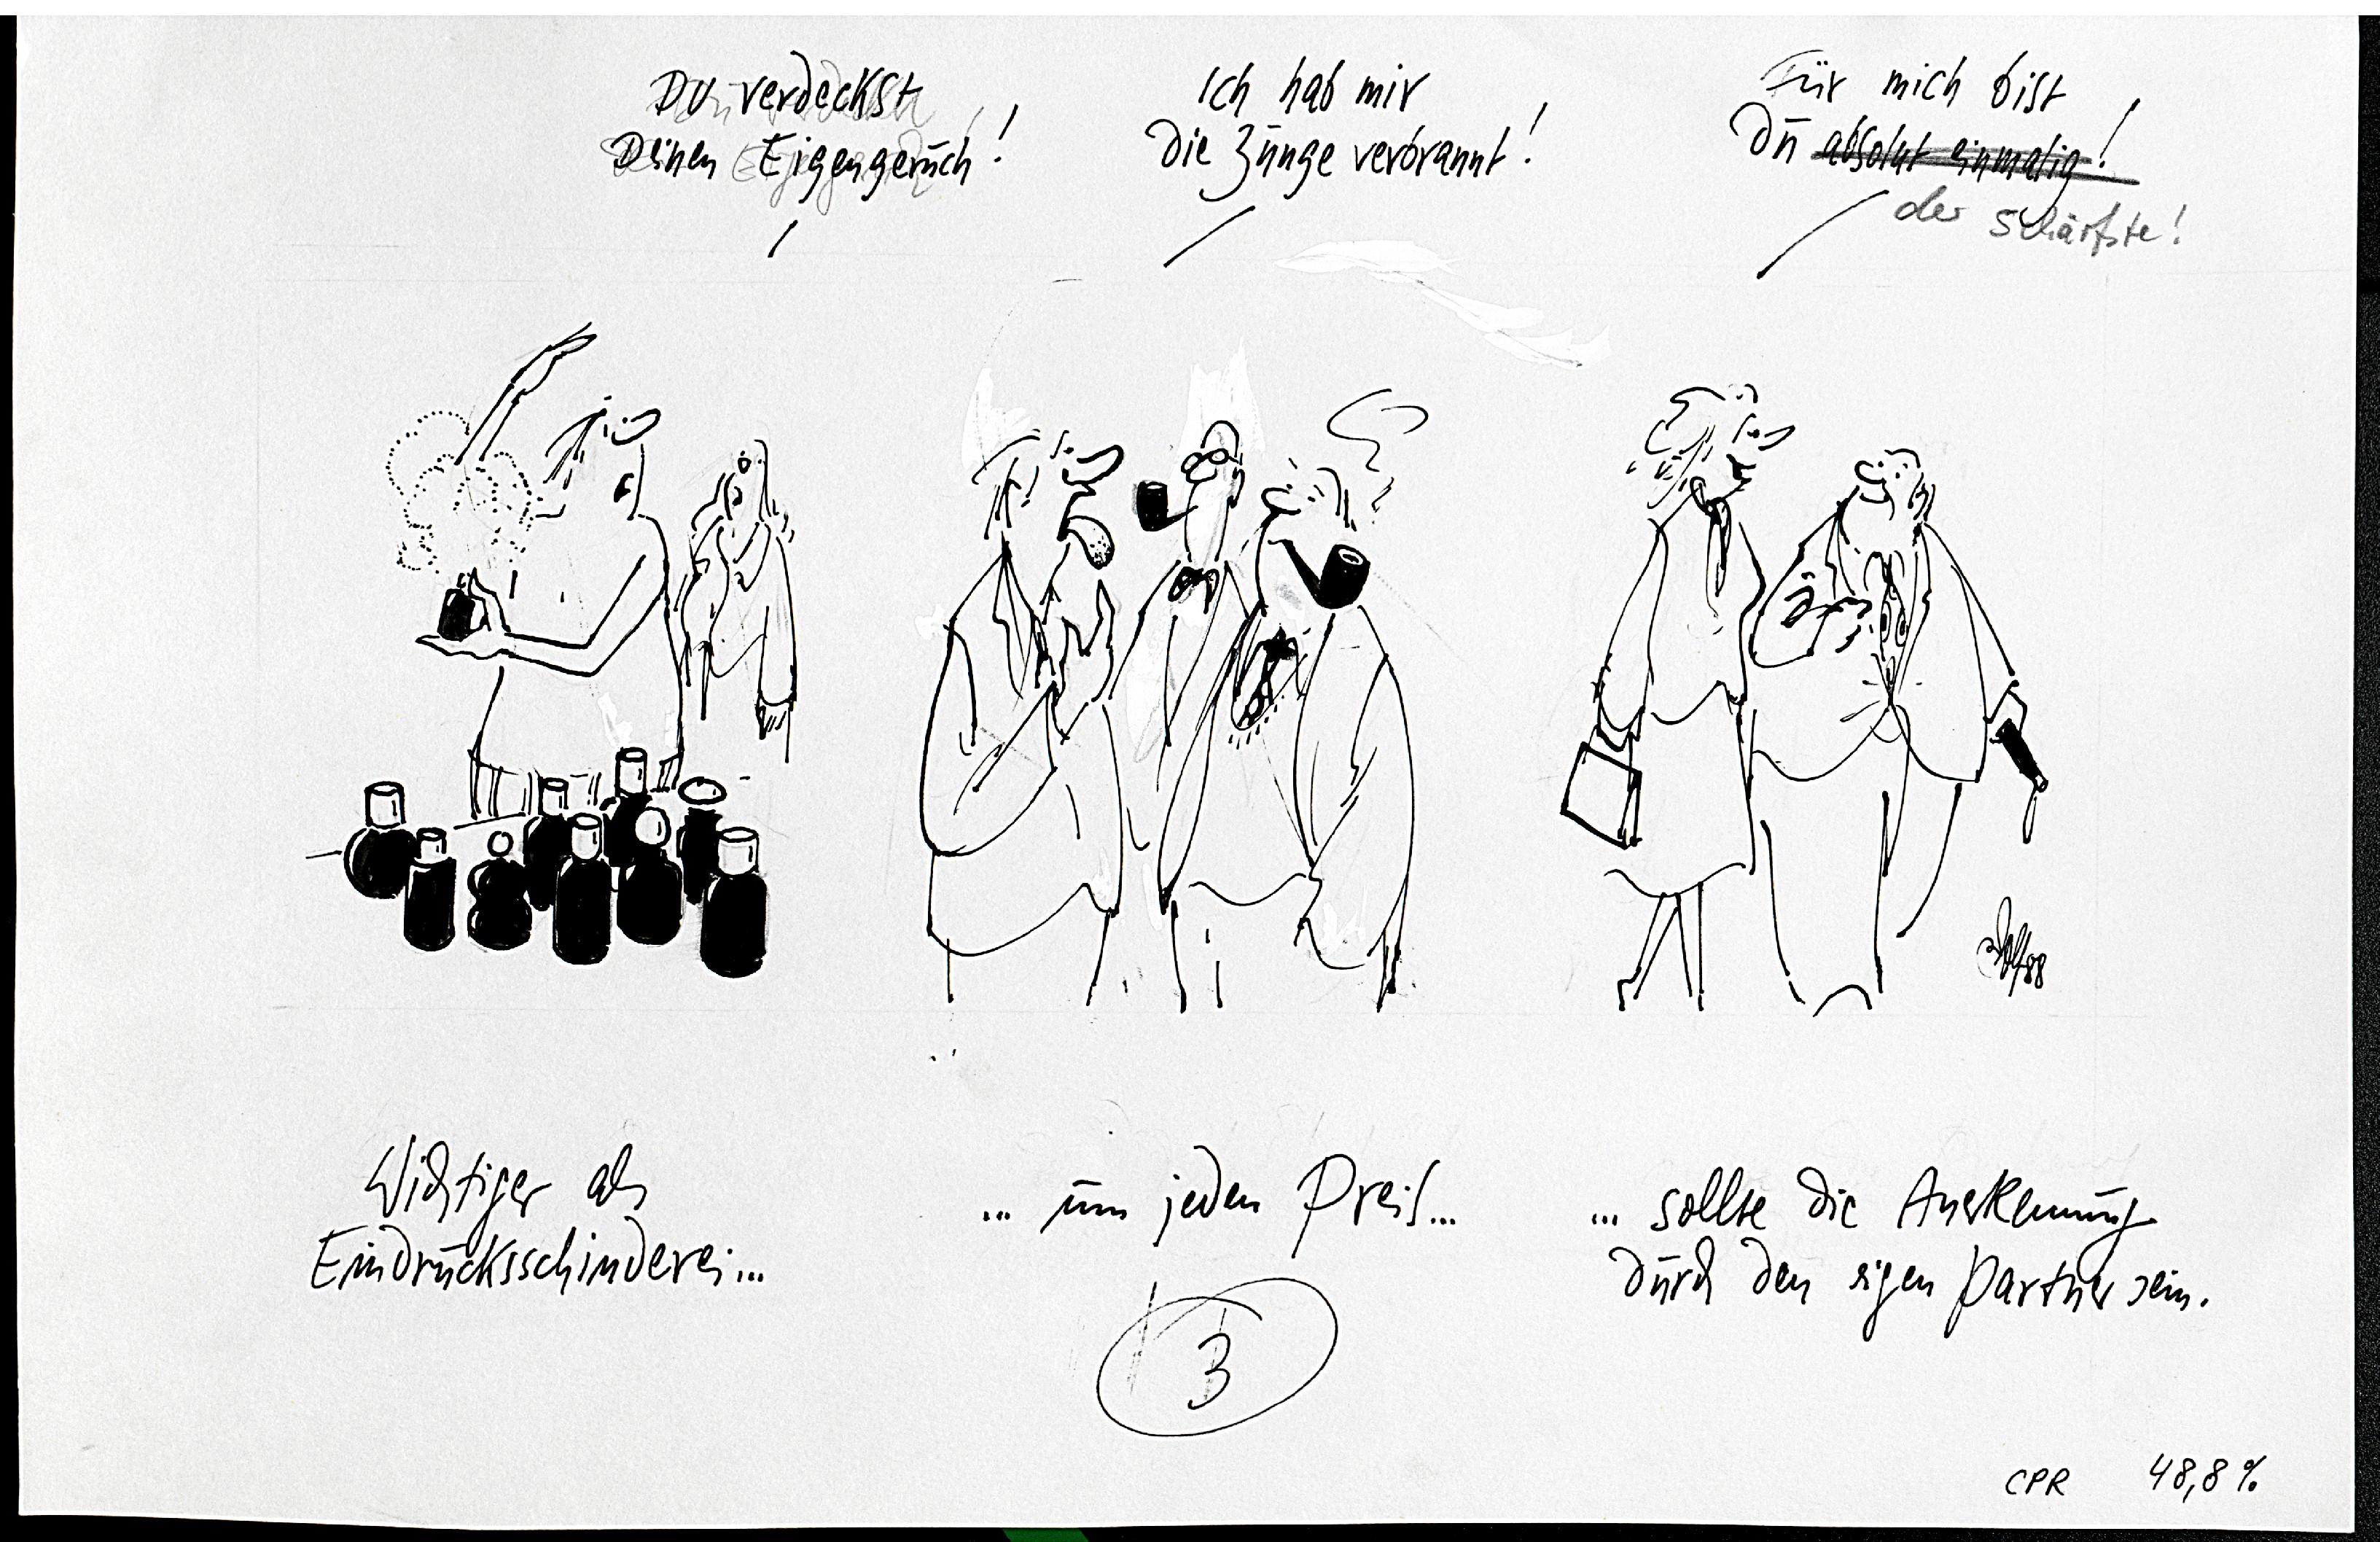 Du verdeckst
Deinen Eigengeruch!
Ich hab mir
die Zunge verbrannt!
Für mich bist
Du absolut einmalig!
der schärfste!
88
Wichtiger als
Eindrucksschinderei...
... um jeden Preis...
... sollte die Anerkennung
durch den eigen Partner sein.
3
CPR 48,8%